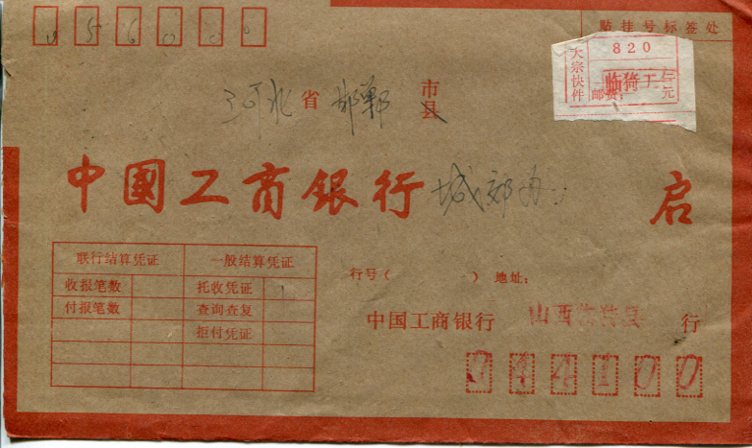 056000
贴挂号标签处
大宗快件
820
临猗工行
邮费: 元
河北省邯郸市县
中國工商銀行城郊办 启
联行结算凭证 一般结算凭证
收报笔数 托收凭证
付报笔数 查询查复
拒付凭证
行号( ) 地址:
中国工商银行 山西临猗县 行
044100